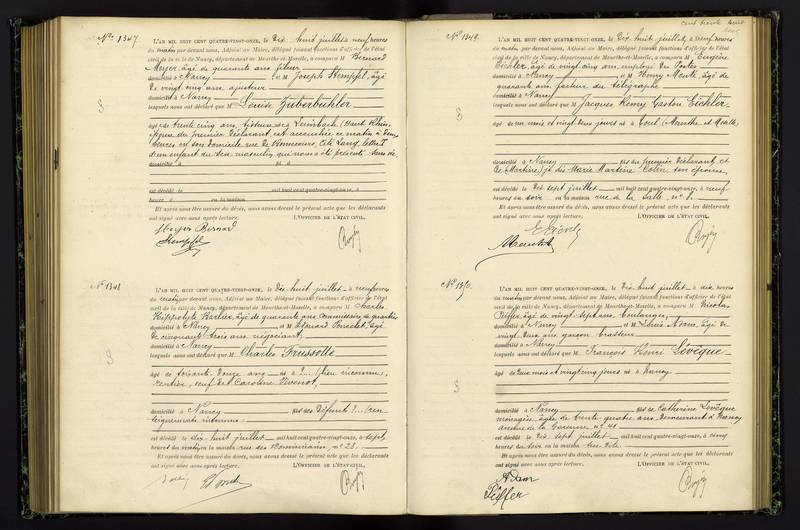 No 1347
L'AN MIL HUIT CENT QUATRE-VINGT-ONZE, le Dix-huit juillet à neuf heures
du matin par devant nous, Adjoint au Maire, délégué faisant fonctions d'officier de l'état
civil de la ville de Nancy, département de Meurthe-et-Moselle, a comparu M Bernard
Meyer, âgé de quarante ans
domicilié à Nancy et M Joseph Stempfel, âgé
de vingt cinq ans, ajusteur
domicilié à Nancy
lesquels nous ont déclaré que M Louise Zuberbühler
âgée de trente cinq ans, née à Leimbach (Haut Rhin)
épouse du premier Déclarant, est accouchée ce matin à deux
heures en son domicile rue de Bonsecours, Cité Lang, lettre J
d'un enfant du sexe masculin qui nous a été présenté sans vie
domicilié à fil de
est décédé le mil huit cent quatre-vingt-onze, à
heures du en la maison
Et après nous être assuré du décès, nous avons dressé le présent acte que les déclarants
ont signé avec nous après lecture. L'OFFICIER DE L'ÉTAT CIVIL,
Meyer Bernard
Stempfel
No 1348
L'AN MIL HUIT CENT QUATRE-VINGT-ONZE, le Dix-huit juillet à neuf heures
du matin par devant nous, Adjoint au Maire, délégué faisant fonctions d'officier de l'état
civil de la ville de Nancy, département de Meurthe-et-Moselle, a comparu M Charles
Hippolyte Barlier, âgé de quarante ans, Commissaire de quartier
domicilié à Nancy et M Edouard, âgé
de cinquante trois ans, négociant
domicilié à Nancy
lesquels nous ont déclaré que M Charles Frussotte
âgé de soixante-douze ans né à ?... (lieu inconnu),
rentier, veuf de Caroline Vivenot,
domicilié à Nancy fils des Défunts ?... (ren
seignements inconnus)
est décédé le dix-huit juillet mil huit cent quatre-vingt-onze, à sept
heures du matin en la maison rue des Dominicains, no 28.
Et après nous être assuré du décès, nous avons dressé le présent acte que les déclarants
ont signé avec nous après lecture. L'OFFICIER DE L'ÉTAT CIVIL,
cent trente huit
No 1349
L'AN MIL HUIT CENT QUATRE-VINGT-ONZE, le Dix-huit juillet, à neuf heures
du matin par devant nous, Adjoint au Maire, délégué faisant fonctions d'officier de l'état
civil de la ville de Nancy, département de Meurthe-et-Moselle, a comparu M Eugène
Eichler, âgé de vingt cinq ans, employé des Postes
domicilié à Nancy et M Henry, âgé de
quarante ans, facteur du télégraphe
domicilié à Nancy
lesquels nous ont déclaré que M Jacques Henry Gaston Eichler
âgé de un mois et vingt deux jours né à Toul (Meurthe et Moselle)
domicilié à Nancy fils du premier Déclarant et
de Marie Martine Colin, son épouse,
est décédé le Dix-sept juillet mil huit cent quatre-vingt-onze, à neuf
heures du soir en la maison rue de la Salle, no 1.
Et après nous être assuré du décès, nous avons dressé le présent acte que les déclarants
ont signé avec nous après lecture. L'OFFICIER DE L'ÉTAT CIVIL,
No 1350
L'AN MIL HUIT CENT QUATRE-VINGT-ONZE, le Dix-huit juillet à dix heures
du matin par devant nous, Adjoint au Maire, délégué faisant fonctions d'officier de l'état
civil de la ville de Nancy, département de Meurthe-et-Moselle, a comparu M Nicolas
Piffer, âgé de vingt-sept ans, boulanger,
domicilié à Nancy et M Louis Adam, âgé de
vingt deux ans, garçon brasseur
domicilié à Nancy
lesquels nous ont déclaré que M François Henri Lévêque
âgé de deux mois et vingt cinq jours né à Nancy
domicilié à Nancy fils de Catherine Lévêque
ménagère, âgée de trente quatre ans, demeurant à Nancy
avenue de la Garenne, no 41
est décédé le Dix-sept juillet mil huit cent quatre-vingt-onze, à cinq
heures du soir en la maison
Et après nous être assuré du décès, nous avons dressé le présent acte que les déclarants
ont signé avec nous après lecture. L'OFFICIER DE L'ÉTAT CIVIL,
Adam
Piffer